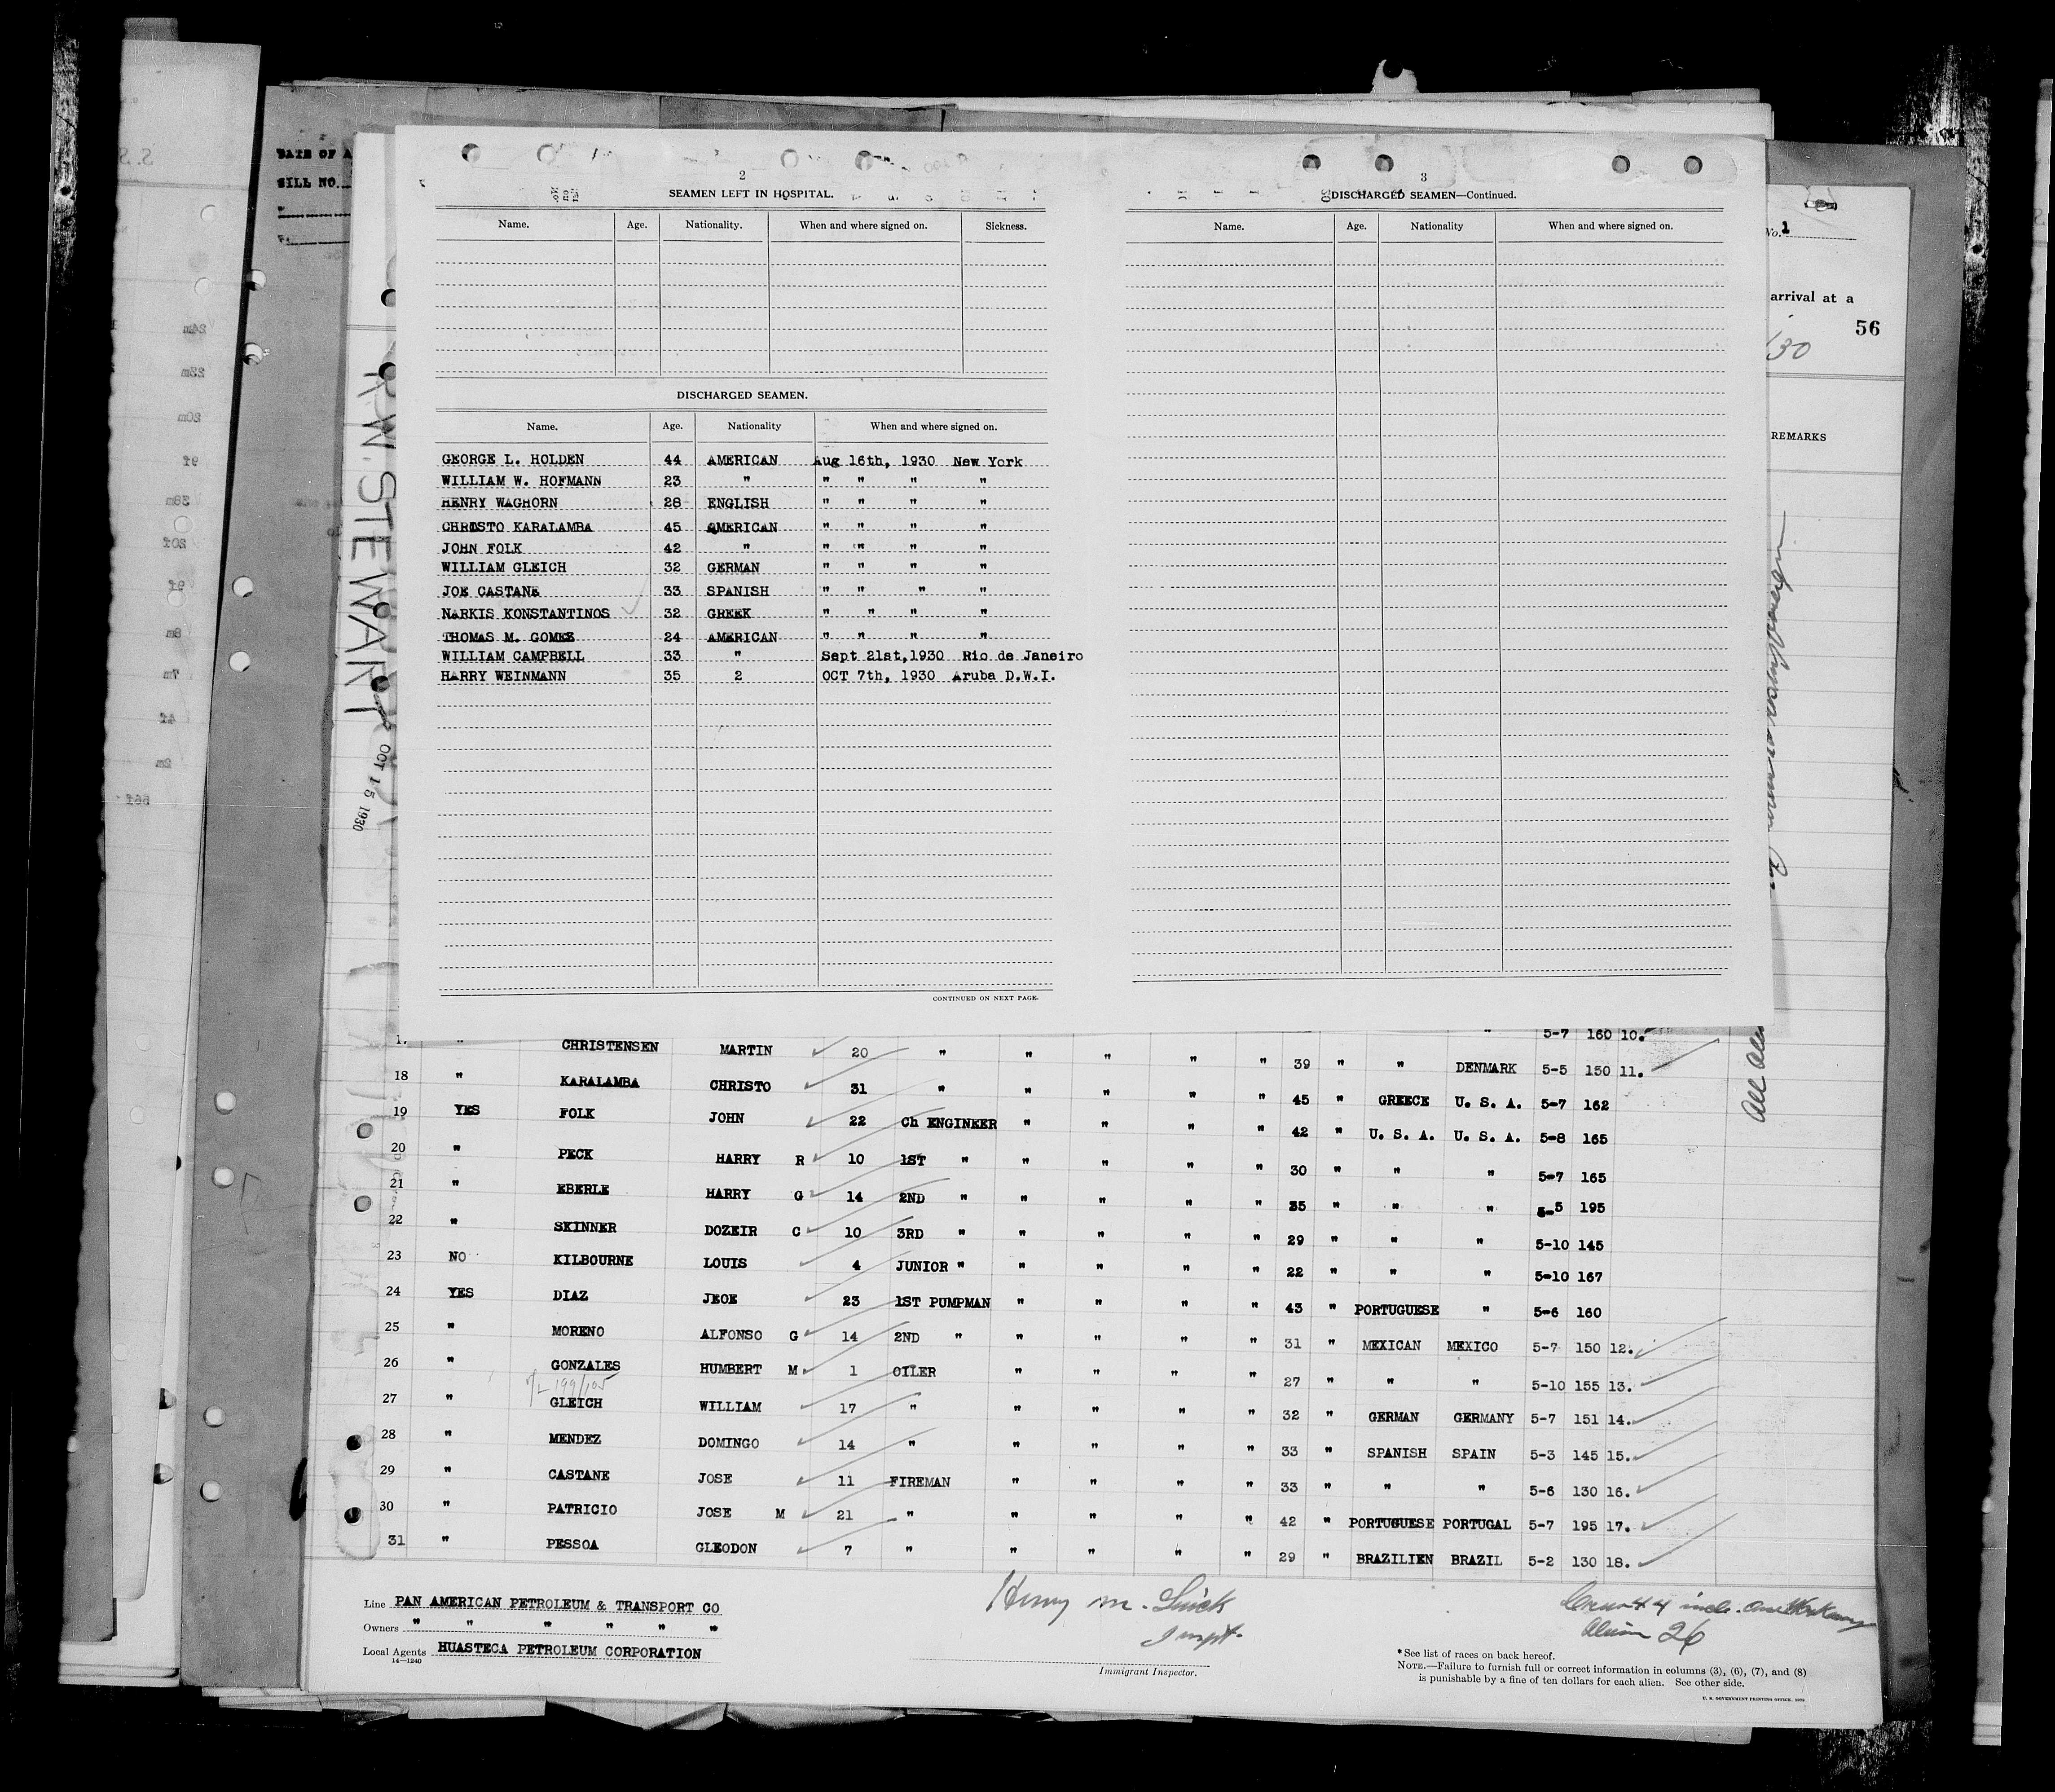 DATE OF A
BILL NO.
R.W. STEWART
OCT 15 1930
2
SEAMEN LEFT IN HOSPITAL.
Name. Age. Nationality. When and where signed on. Sickness.
DISCHARGED SEAMEN.
Name. Age. Nationality When and where signed on.
GEORGE L. HOLDEN 44 AMERICAN Aug 16th, 1930 New York
WILLIAM W. HOFMANN 23 " " " " "
HENRY WAGHORN 28 ENGLISH " " " "
CHRISTO KARALAMBA 45 AMERICAN " " " "
JOHN FOLK 42 " " " " "
WILLIAM GLEICH 32 GERMAN " " " "
JOE CASTANE 33 SPANISH " " " "
NARKIS KONSTANTINOS 32 GREEK " " " "
THOMAS M. GOMEZ 24 AMERICAN " " " "
WILLIAM CAMPBELL 33 " Sept 21st,1930 Rio de Janeiro
HARRY WEINMANN 35 2 OCT 7th, 1930 Aruba D.W.I.
CONTINUED ON NEXT PAGE.
3
DISCHARGED SEAMEN—Continued.
Name. Age. Nationality When and where signed on.
No. 1
arrival at a
56
30
REMARKS
" 5-7 160 10.
" CHRISTENSEN MARTIN 20 " " " " " 39 " " DENMARK 5-5 150 11.
18 " KARALAMBA CHRISTO 31 " " " " " 45 " GREECE U. S. A. 5-7 162
19 YES FOLK JOHN 22 Ch ENGINEER " " " " 42 " U. S. A. U. S. A. 5-8 165
20 " PECK HARRY R 10 1ST " " " " " 30 " " " 5-7 165
21 " EBERLE HARRY G 14 2ND " " " " " 35 " " " 5-5 195
22 " SKINNER DOZEIR C 10 3RD " " " " " 29 " " " 5-10 145
23 NO KILBOURNE LOUIS 4 JUNIOR " " " " " 22 " " " 5-10 167
24 YES DIAZ JEOE 23 1ST PUMPMAN " " " " 43 " PORTUGUESE " 5-6 160
25 " MORENO ALFONSO G 14 2ND " " " " " 31 " MEXICAN MEXICO 5-7 150 12.
26 " GONZALES HUMBERT M 1 OILER " " " " 27 " " " 5-10 155 13.
199/105
27 " GLEICH WILLIAM 17 " " " " " 32 " GERMAN GERMANY 5-7 151 14.
28 " MENDEZ DOMINGO 14 " " " " " 33 " SPANISH SPAIN 5-3 145 15.
29 " CASTANE JOSE 11 FIREMAN " " " " 33 " " " 5-6 130 16.
30 " PATRICIO JOSE M 21 " " " " " 42 " PORTUGUESE PORTUGAL 5-7 195 17.
31 " PESSOA GLEODON 7 " " " " " 29 " BRAZILIEN BRAZIL 5-2 130 18.
Line PAN AMERICAN PETROLEUM & TRANSPORT CO
Owners " " " " " "
Local Agents HUASTECA PETROLEUM CORPORATION
14—1240
Henry M.
Inspt.
Immigrant Inspector.
Crew 44 incl. one
Alien 26
* See list of races on back hereof.
NOTE.—Failure to furnish full or correct information in columns (3), (6), (7), and (8)
is punishable by a fine of ten dollars for each alien. See other side.
U. S. GOVERNMENT PRINTING OFFICE